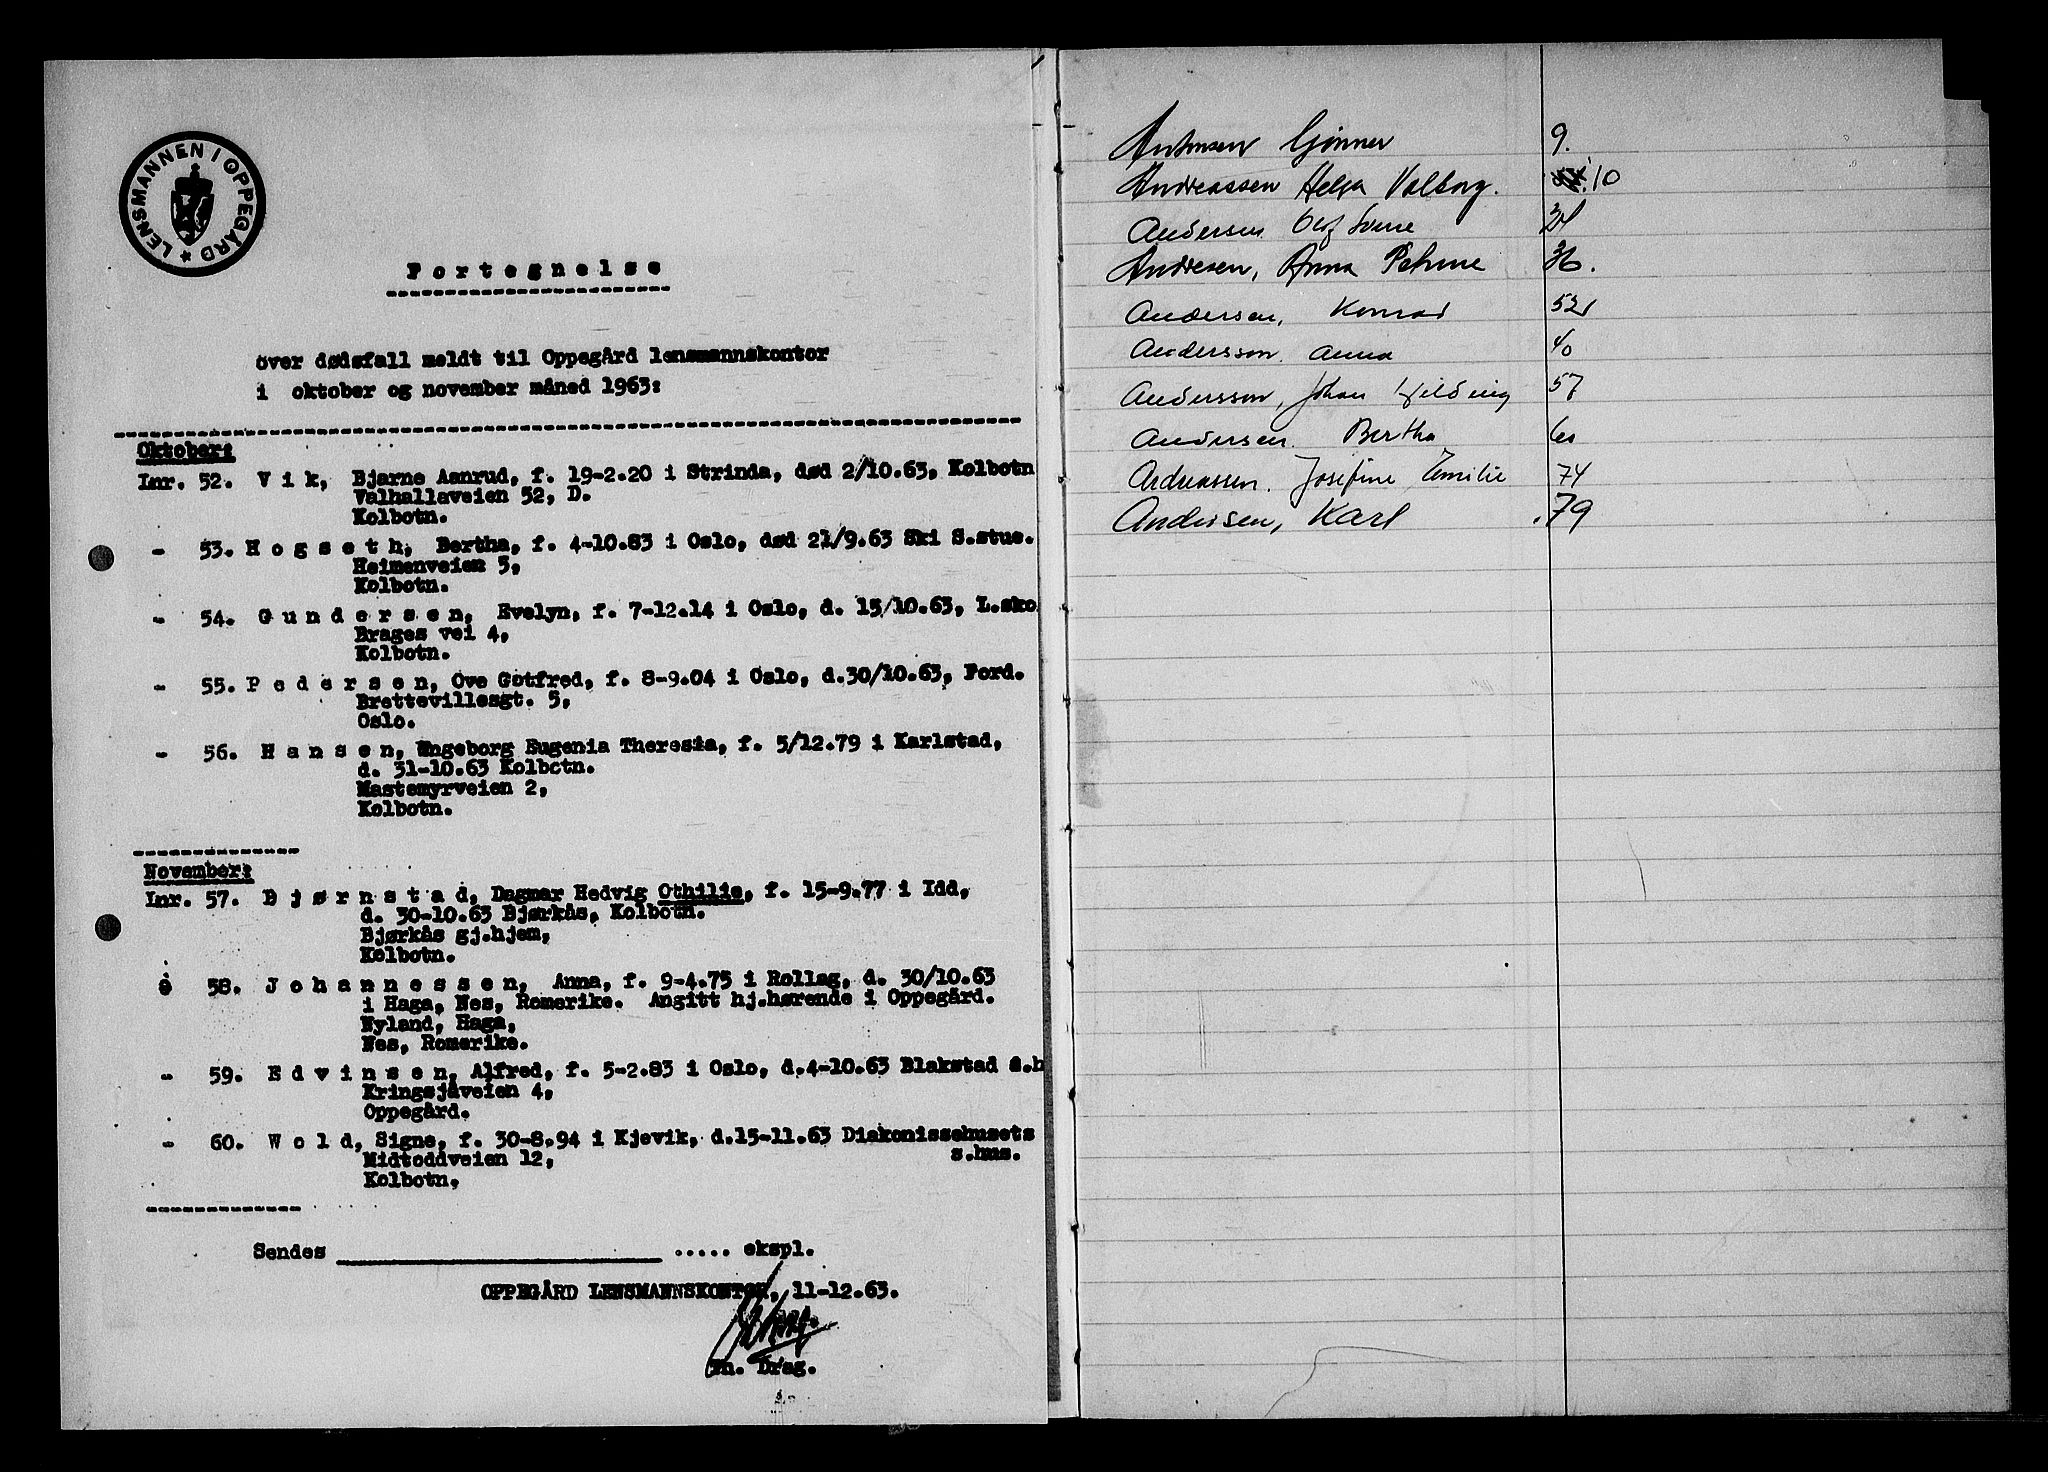 LENSMANNEN I OPPEGÅRD
F o r t e g n e l s e
over dødsfall meldt til Oppegård lensmannskontor
i oktober og november måned 1963:
Oktober:
Lnr. 52. V i k, Bjarne Aanrud, f. 19-2.20 i Strinda, død 2/10.63, Kolbotn
Valhallaveien 52, D.
Kolbotn.
- 53. H o g s e t h, Bertha, f. 4-10.83 i Oslo, død 21/9.63 Ski S.stue.
Heimenveien 5,
Kolbotn.
- 54. G u n d e r s e n, Evelyn, f. 7-12.14 i Oslo, d. 15/10.63, L.sko
Brages vei 4,
Kolbotn.
- 55. P e d e r s e n, Ove Gotfred, f. 8-9.04 i Oslo, d.30/10.63, Ford.
Brettevillesgt. 5,
Oslo.
- 56. H a n s e n, Ingeborg Eugenia Theresia, f. 5/12.79 i Karlstad,
d. 31-10.63 Kolbotn.
Mastemyrveien 2,
Kolbotn.
November:
Lnr. 57. B j ø r n s t a d, Dagmar Hedvig Othilie, f. 15-9.77 i Idd,
d. 30-10.63 Bjørkås, Kolbotn.
Bjørkås gj.hjem,
Kolbotn.
58. J o h a n n e s s e n, Anna, f. 9-4.75 i Rollag, d. 30/10.63
i Haga, Nes, Romerike. Angitt hj.hørende i Oppegård.
Nyland, Haga,
Nes, Romerike.
- 59. E d v i n s e n, Alfred, f. 5-2.83 i Oslo, d.4-10.63 Blakstad s.h
Kringsjåveien 4,
Oppegård.
- 60. W o l d, Signe, f. 30-8.94 i Kjevik, d.15-11.63 Diakonissehusets
s.hus.
Midtoddveien 12,
Kolbotn.
Sendes ..... ekspl.
OPPEGÅRD LENSMANNSKONTOR, 11-12.63.
Th. Drag.
Gunner 9.
Andreassen Helga Valborg. 10
Andersen Olf Sverre 34
Andresen, Anna Petrine 36.
Andersen, Konrad 52
Andersson. Anna 40
Andersson, Johan Hilding 57
Andersen. Bertha 60
Andreassen. Josefine Emilie 74
Andersen, Karl .79